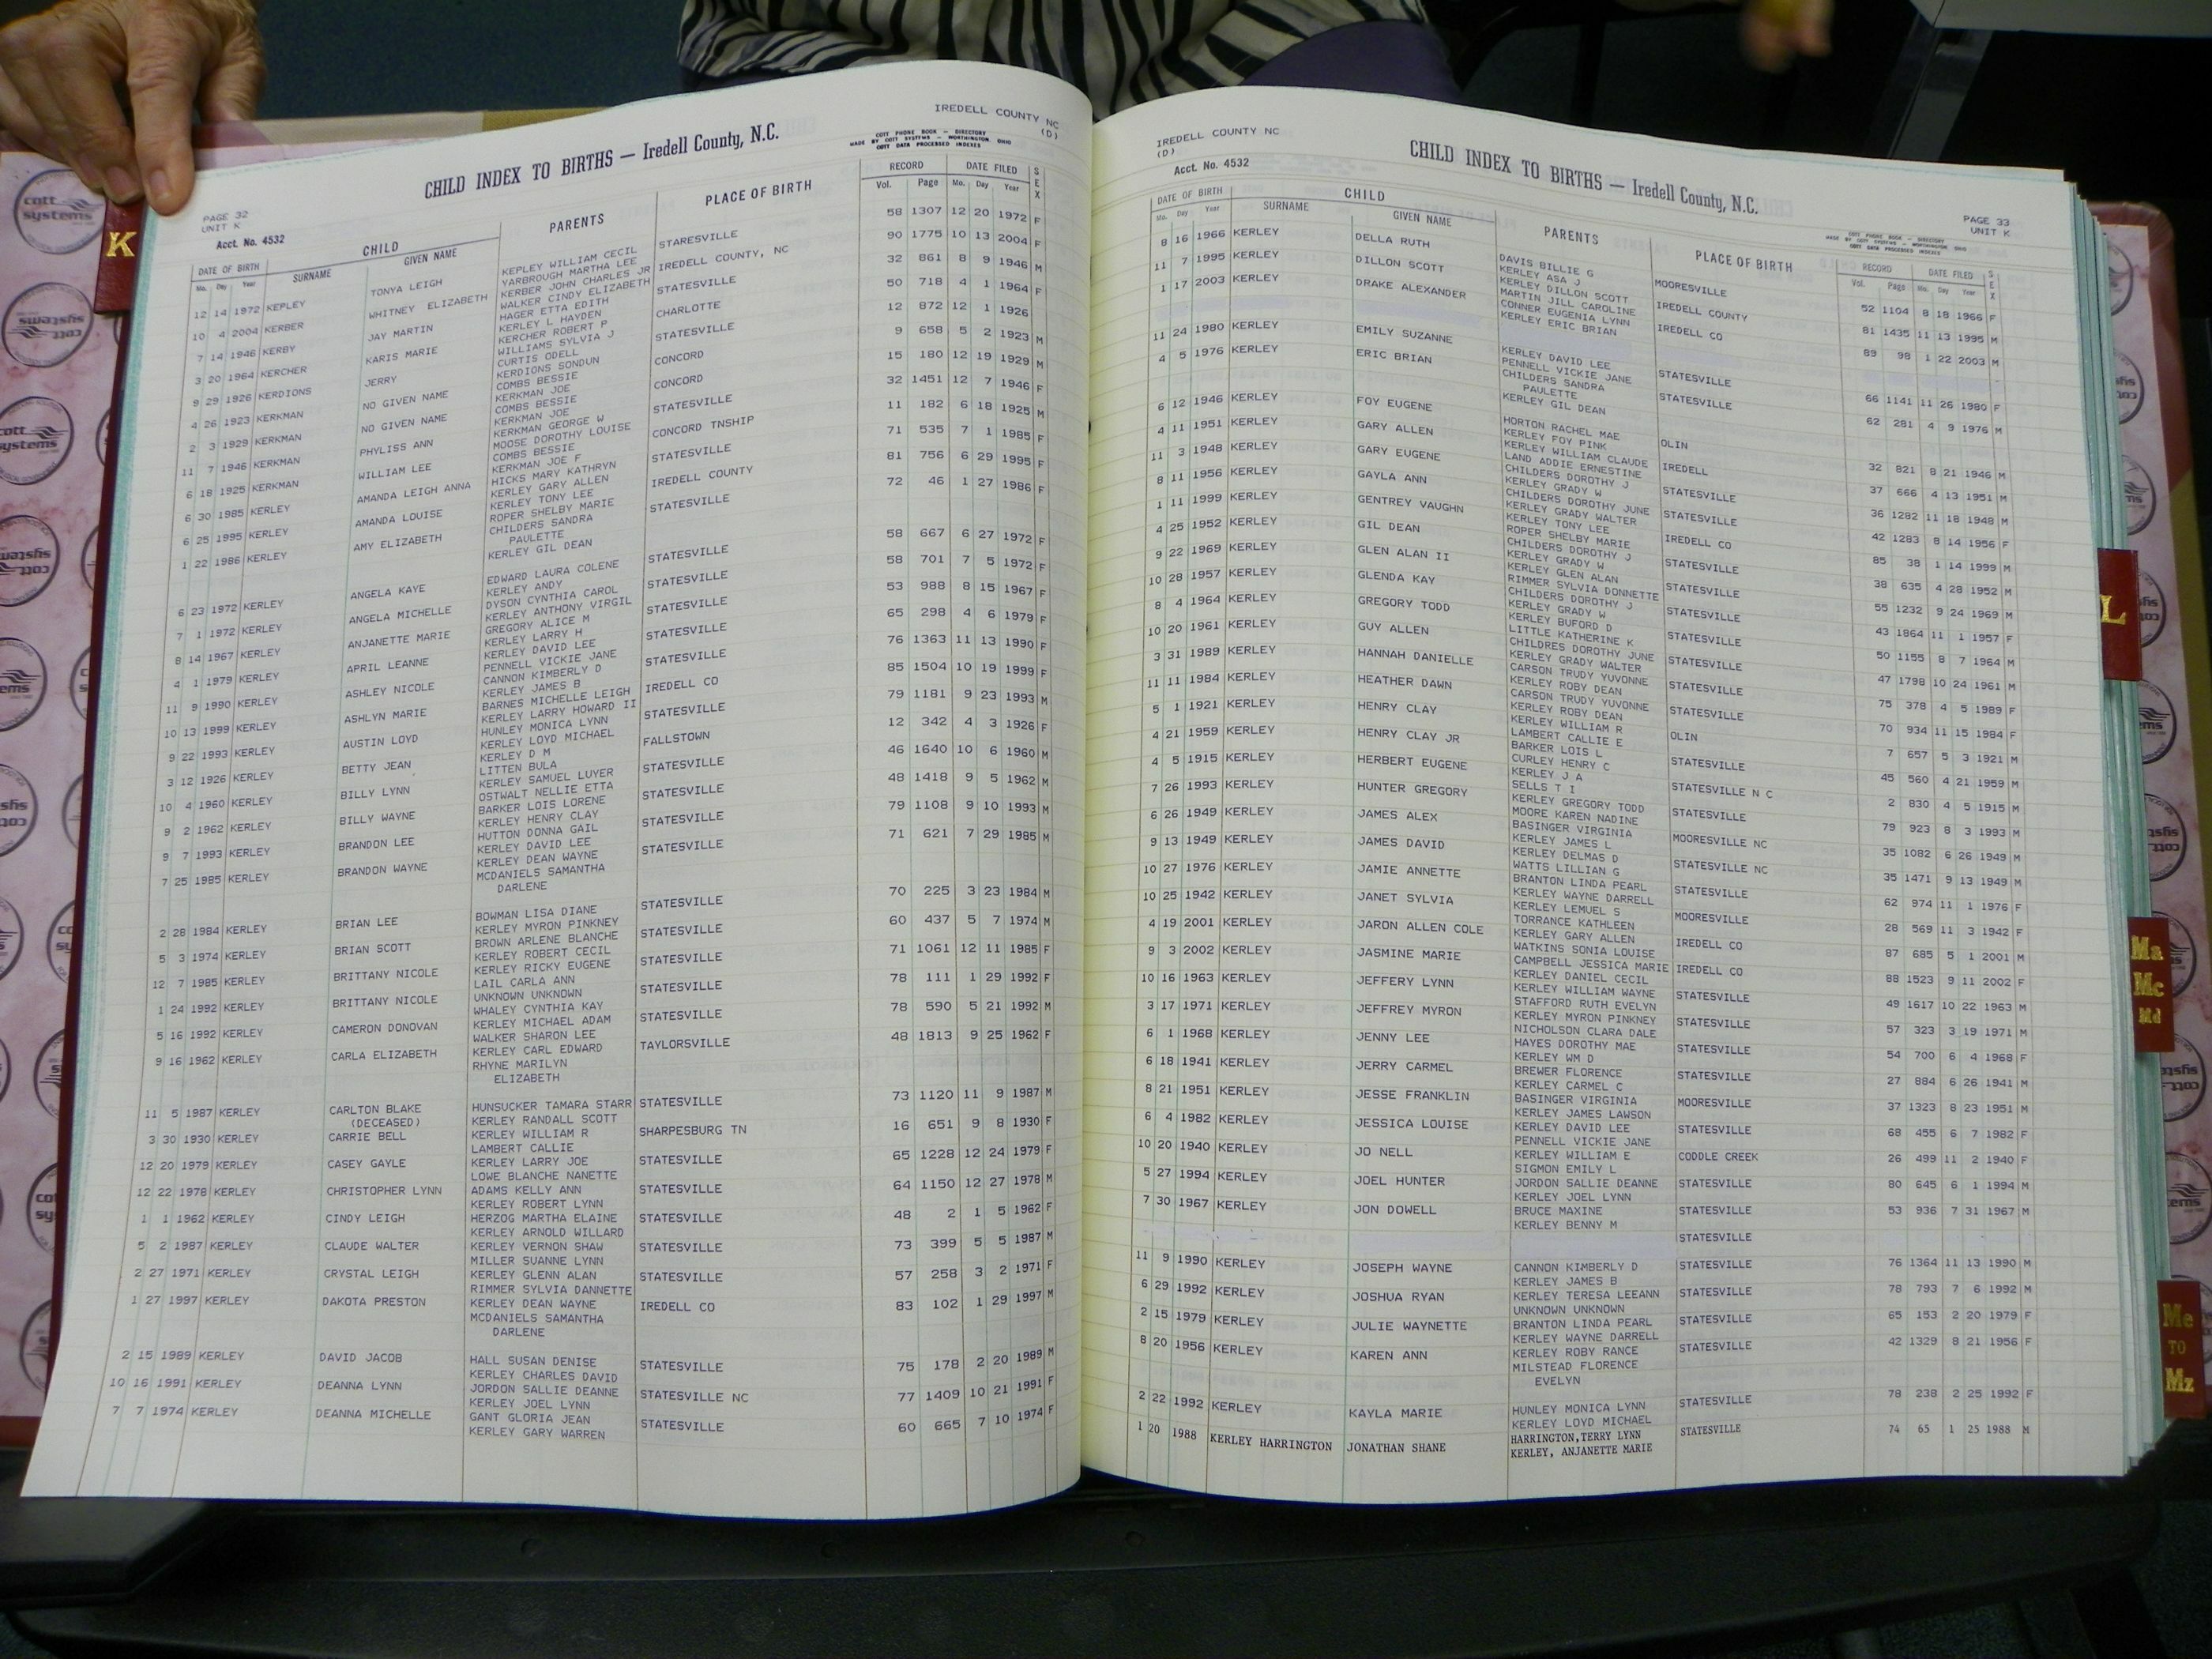 IREDELL COUNTY NC
(D)
CHILD INDEX TO BIRTHS — Iredell County, N.C.
COTT PHONE BOOK — DIRECTORY
MADE BY COTT SYSTEMS — WORTHINGTON, OHIO
COTT DATA PROCESSED INDEXES
PAGE 32
UNIT K
Acct. No. 4532
DATE OF BIRTH CHILD PARENTS PLACE OF BIRTH RECORD DATE FILED SEX
Mo. Day Year SURNAME GIVEN NAME Vol. Page Mo. Day Year
12 14 1972 KEPLEY TONYA LEIGH KEPLEY WILLIAM CECIL STARESVILLE 58 1307 12 20 1972 F
YARBROUGH MARTHA LEE
10 4 2004 KERBER WHITNEY ELIZABETH KERBER JOHN CHARLES JR IREDELL COUNTY, NC 90 1775 10 13 2004 F
WALKER CINDY ELIZABETH
7 14 1946 KERBY JAY MARTIN HAGER ETTA EDITH STATESVILLE 32 861 8 9 1946 M
KERLEY L HAYDEN
3 20 1964 KERCHER KARIS MARIE KERCHER ROBERT P CHARLOTTE 50 718 4 1 1964 F
WILLIAMS SYLVIA J
9 29 1926 KERDIONS JERRY CURTIS ODELL STATESVILLE 12 872 12 1 1926
KERDIONS SONDUN
4 26 1923 KERKMAN NO GIVEN NAME COMBS BESSIE CONCORD 9 658 5 2 1923 M
KERKMAN JOE
2 3 1929 KERKMAN NO GIVEN NAME COMBS BESSIE CONCORD 15 180 12 19 1929 M
KERKMAN JOE
11 7 1946 KERKMAN PHYLISS ANN KERKMAN GEORGE W STATESVILLE 32 1451 12 7 1946 F
MOOSE DOROTHY LOUISE
6 18 1925 KERKMAN WILLIAM LEE COMBS BESSIE CONCORD TNSHIP 11 182 6 18 1925 M
KERKMAN JOE F
6 30 1985 KERLEY AMANDA LEIGH ANNA HICKS MARY KATHRYN STATESVILLE 71 535 7 1 1985 F
KERLEY GARY ALLEN
6 25 1995 KERLEY AMANDA LOUISE KERLEY TONY LEE IREDELL COUNTY 81 756 6 29 1995 F
ROPER SHELBY MARIE
1 22 1986 KERLEY AMY ELIZABETH CHILDERS SANDRA STATESVILLE 72 46 1 27 1986 F
PAULETTE
KERLEY GIL DEAN
6 23 1972 KERLEY ANGELA KAYE EDWARD LAURA COLENE STATESVILLE 58 667 6 27 1972 F
KERLEY ANDY
7 1 1972 KERLEY ANGELA MICHELLE DYSON CYNTHIA CAROL STATESVILLE 58 701 7 5 1972 F
KERLEY ANTHONY VIRGIL
8 14 1967 KERLEY ANJANETTE MARIE GREGORY ALICE M STATESVILLE 53 988 8 15 1967 F
KERLEY LARRY H
4 1 1979 KERLEY APRIL LEANNE KERLEY DAVID LEE STATESVILLE 65 298 4 6 1979 F
PENNELL VICKIE JANE
11 9 1990 KERLEY ASHLEY NICOLE CANNON KIMBERLY D STATESVILLE 76 1363 11 13 1990 F
KERLEY JAMES B
10 13 1999 KERLEY ASHLYN MARIE BARNES MICHELLE LEIGH IREDELL CO 85 1504 10 19 1999 F
KERLEY LARRY HOWARD II
9 22 1993 KERLEY AUSTIN LOYD HUNLEY MONICA LYNN STATESVILLE 79 1181 9 23 1993 M
KERLEY LOYD MICHAEL
3 12 1926 KERLEY BETTY JEAN KERLEY D M FALLSTOWN 12 342 4 3 1926 F
LITTEN BULA
10 4 1960 KERLEY BILLY LYNN KERLEY SAMUEL LUYER STATESVILLE 46 1640 10 6 1960 M
OSTWALT NELLIE ETTA
9 2 1962 KERLEY BILLY WAYNE BARKER LOIS LORENE STATESVILLE 48 1418 9 5 1962 M
KERLEY HENRY CLAY
9 7 1993 KERLEY BRANDON LEE HUTTON DONNA GAIL STATESVILLE 79 1108 9 10 1993 M
KERLEY DAVID LEE
7 25 1985 KERLEY BRANDON WAYNE KERLEY DEAN WAYNE STATESVILLE 71 621 7 29 1985 M
MCDANIELS SAMANTHA
DARLENE
2 28 1984 KERLEY BRIAN LEE BOWMAN LISA DIANE STATESVILLE 70 225 3 23 1984 M
KERLEY MYRON PINKNEY
5 3 1974 KERLEY BRIAN SCOTT BROWN ARLENE BLANCHE STATESVILLE 60 437 5 7 1974 M
KERLEY ROBERT CECIL
12 7 1985 KERLEY BRITTANY NICOLE KERLEY RICKY EUGENE STATESVILLE 71 1061 12 11 1985 F
LAIL CARLA ANN
1 24 1992 KERLEY BRITTANY NICOLE UNKNOWN UNKNOWN STATESVILLE 78 111 1 29 1992 F
WHALEY CYNTHIA KAY
5 16 1992 KERLEY CAMERON DONOVAN KERLEY MICHAEL ADAM STATESVILLE 78 590 5 21 1992 M
WALKER SHARON LEE
9 16 1962 KERLEY CARLA ELIZABETH KERLEY CARL EDWARD TAYLORSVILLE 48 1813 9 25 1962 F
RHYNE MARILYN
ELIZABETH
11 5 1987 KERLEY CARLTON BLAKE HUNSUCKER TAMARA STARR STATESVILLE 73 1120 11 9 1987 M
(DECEASED) KERLEY RANDALL SCOTT
3 30 1930 KERLEY CARRIE BELL KERLEY WILLIAM R SHARPESBURG TN 16 651 9 8 1930 F
LAMBERT CALLIE
12 20 1979 KERLEY CASEY GAYLE KERLEY LARRY JOE STATESVILLE 65 1228 12 24 1979 F
LOWE BLANCHE NANETTE
12 22 1978 KERLEY CHRISTOPHER LYNN ADAMS KELLY ANN STATESVILLE 64 1150 12 27 1978 M
KERLEY ROBERT LYNN
1 1 1962 KERLEY CINDY LEIGH HERZOG MARTHA ELAINE STATESVILLE 48 2 1 5 1962 F
KERLEY ARNOLD WILLARD
5 2 1987 KERLEY CLAUDE WALTER KERLEY VERNON SHAW STATESVILLE 73 399 5 5 1987 M
MILLER SUANNE LYNN
2 27 1971 KERLEY CRYSTAL LEIGH KERLEY GLENN ALAN STATESVILLE 57 258 3 2 1971 F
RIMMER SYLVIA DANNETTE
1 27 1997 KERLEY DAKOTA PRESTON KERLEY DEAN WAYNE IREDELL CO 83 102 1 29 1997 M
MCDANIELS SAMANTHA
DARLENE
2 15 1989 KERLEY DAVID JACOB HALL SUSAN DENISE STATESVILLE 75 178 2 20 1989 M
KERLEY CHARLES DAVID
10 16 1991 KERLEY DEANNA LYNN JORDON SALLIE DEANNE STATESVILLE NC 77 1409 10 21 1991 F
KERLEY JOEL LYNN
7 7 1974 KERLEY DEANNA MICHELLE GANT GLORIA JEAN STATESVILLE 60 665 7 10 1974 F
KERLEY GARY WARREN
IREDELL COUNTY NC
(D)
Acct. No. 4532
CHILD INDEX TO BIRTHS — Iredell County, N.C.
PAGE 33
UNIT K
COTT PHONE BOOK — DIRECTORY
MADE BY COTT SYSTEMS — WORTHINGTON, OHIO
COTT DATA PROCESSED INDEXES
DATE OF BIRTH CHILD PARENTS PLACE OF BIRTH RECORD DATE FILED SEX
Mo. Day Year SURNAME GIVEN NAME Vol. Page Mo. Day Year
8 16 1966 KERLEY DELLA RUTH DAVIS BILLIE G MOORESVILLE 52 1104 8 18 1966 F
KERLEY ASA J
11 7 1995 KERLEY DILLON SCOTT KERLEY DILLON SCOTT IREDELL COUNTY 81 1435 11 13 1995 M
MARTIN JILL CAROLINE
1 17 2003 KERLEY DRAKE ALEXANDER CONNER EUGENIA LYNN IREDELL CO 89 98 1 22 2003 M
KERLEY ERIC BRIAN
11 24 1980 KERLEY EMILY SUZANNE KERLEY DAVID LEE STATESVILLE 66 1141 11 26 1980 F
PENNELL VICKIE JANE
4 5 1976 KERLEY ERIC BRIAN CHILDERS SANDRA STATESVILLE 62 281 4 9 1976 M
PAULETTE
KERLEY GIL DEAN
6 12 1946 KERLEY FOY EUGENE HORTON RACHEL MAE OLIN 32 821 8 21 1946 M
KERLEY FOY PINK
4 11 1951 KERLEY GARY ALLEN KERLEY WILLIAM CLAUDE IREDELL 37 666 4 13 1951 M
LAND ADDIE ERNESTINE
11 3 1948 KERLEY GARY EUGENE CHILDERS DOROTHY J STATESVILLE 36 1282 11 18 1948 M
KERLEY GRADY W
8 11 1956 KERLEY GAYLA ANN CHILDERS DOROTHY JUNE STATESVILLE 42 1283 8 14 1956 F
KERLEY GRADY WALTER
1 11 1999 KERLEY GENTREY VAUGHN KERLEY TONY LEE IREDELL CO 85 38 1 14 1999 M
ROPER SHELBY MARIE
4 25 1952 KERLEY GIL DEAN CHILDERS DOROTHY J STATESVILLE 38 635 4 28 1952 M
KERLEY GRADY W
9 22 1969 KERLEY GLEN ALAN II KERLEY GLEN ALAN STATESVILLE 55 1232 9 24 1969 M
RIMMER SYLVIA DONNETTE
10 28 1957 KERLEY GLENDA KAY CHILDERS DOROTHY J STATESVILLE 43 1864 11 1 1957 F
KERLEY GRADY W
8 4 1964 KERLEY GREGORY TODD KERLEY BUFORD D STATESVILLE 50 1155 8 7 1964 M
LITTLE KATHERINE K
10 20 1961 KERLEY GUY ALLEN CHILDRES DOROTHY JUNE STATESVILLE 47 1798 10 24 1961 M
KERLEY GRADY WALTER
3 31 1989 KERLEY HANNAH DANIELLE CARSON TRUDY YUVONNE STATESVILLE 75 378 4 5 1989 F
KERLEY ROBY DEAN
11 11 1984 KERLEY HEATHER DAWN CARSON TRUDY YUVONNE STATESVILLE 70 934 11 15 1984 F
KERLEY ROBY DEAN
5 1 1921 KERLEY HENRY CLAY KERLEY WILLIAM R OLIN 7 657 5 3 1921 M
LAMBERT CALLIE E
4 21 1959 KERLEY HENRY CLAY JR BARKER LOIS L STATESVILLE 45 560 4 21 1959 M
CURLEY HENRY C
4 5 1915 KERLEY HERBERT EUGENE KERLEY J A STATESVILLE N C 2 830 4 5 1915 M
SELLS T I
7 26 1993 KERLEY HUNTER GREGORY KERLEY GREGORY TODD STATESVILLE 79 923 8 3 1993 M
MOORE KAREN NADINE
6 26 1949 KERLEY JAMES ALEX BASINGER VIRGINIA MOORESVILLE NC 35 1082 6 26 1949 M
KERLEY JAMES L
9 13 1949 KERLEY JAMES DAVID KERLEY DELMAS D STATESVILLE NC 35 1471 9 13 1949 M
WATTS LILLIAN G
10 27 1976 KERLEY JAMIE ANNETTE BRANTON LINDA PEARL STATESVILLE 62 974 11 1 1976 F
KERLEY WAYNE DARRELL
10 25 1942 KERLEY JANET SYLVIA KERLEY LEMUEL S MOORESVILLE 28 569 11 3 1942 F
TORRANCE KATHLEEN
4 19 2001 KERLEY JARON ALLEN COLE KERLEY GARY ALLEN IREDELL CO 87 685 5 1 2001 M
WATKINS SONIA LOUISE
9 3 2002 KERLEY JASMINE MARIE CAMPBELL JESSICA MARIE IREDELL CO 88 1523 9 11 2002 F
KERLEY DANIEL CECIL
10 16 1963 KERLEY JEFFERY LYNN KERLEY WILLIAM WAYNE STATESVILLE 49 1617 10 22 1963 M
STAFFORD RUTH EVELYN
3 17 1971 KERLEY JEFFREY MYRON KERLEY MYRON PINKNEY STATESVILLE 57 323 3 19 1971 M
NICHOLSON CLARA DALE
6 1 1968 KERLEY JENNY LEE HAYES DOROTHY MAE STATESVILLE 54 700 6 4 1968 F
KERLEY WM D
6 18 1941 KERLEY JERRY CARMEL BREWER FLORENCE STATESVILLE 27 884 6 26 1941 M
KERLEY CARMEL C
8 21 1951 KERLEY JESSE FRANKLIN BASINGER VIRGINIA MOORESVILLE 37 1323 8 23 1951 M
KERLEY JAMES LAWSON
6 4 1982 KERLEY JESSICA LOUISE KERLEY DAVID LEE STATESVILLE 68 455 6 7 1982 F
PENNELL VICKIE JANE
10 20 1940 KERLEY JO NELL KERLEY WILLIAM E CODDLE CREEK 26 499 11 2 1940 F
SIGMON EMILY L
5 27 1994 KERLEY JOEL HUNTER JORDON SALLIE DEANNE STATESVILLE 80 645 6 1 1994 M
KERLEY JOEL LYNN
7 30 1967 KERLEY JON DOWELL BRUCE MAXINE STATESVILLE 53 936 7 31 1967 M
KERLEY BENNY M
STATESVILLE
11 9 1990 KERLEY JOSEPH WAYNE CANNON KIMBERLY D STATESVILLE 76 1364 11 13 1990 M
KERLEY JAMES B
6 29 1992 KERLEY JOSHUA RYAN KERLEY TERESA LEEANN STATESVILLE 78 793 7 6 1992 M
UNKNOWN UNKNOWN
2 15 1979 KERLEY JULIE WAYNETTE BRANTON LINDA PEARL STATESVILLE 65 153 2 20 1979 F
KERLEY WAYNE DARRELL
8 20 1956 KERLEY KAREN ANN KERLEY ROBY RANCE STATESVILLE 42 1329 8 21 1956 F
MILSTEAD FLORENCE
EVELYN
2 22 1992 KERLEY KAYLA MARIE HUNLEY MONICA LYNN STATESVILLE 78 238 2 25 1992 F
KERLEY LOYD MICHAEL
1 20 1988 KERLEY HARRINGTON JONATHAN SHANE HARRINGTON,TERRY LYNN STATESVILLE 74 65 1 25 1988 M
KERLEY, ANJANETTE MARIE
K
L
Ma
Mc
Md
Me
TO
Mz
cott
systems